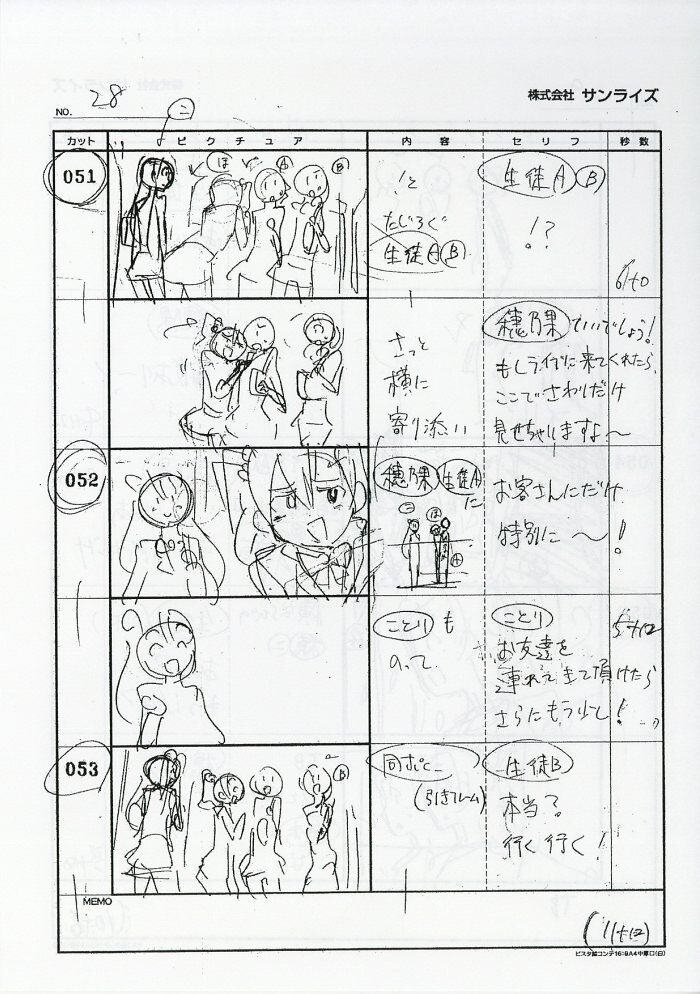 株式会社 サンライズ
NO. 28
カット ピクチュア 内容 セリフ 秒数
ニ
051
ほ Ⓐ Ⓑ
たじろぐ
生徒ⒶⒷ
生徒ⒶⒷ
!?
6+0
さっと
横に
寄り添い
穂乃果 ていいでしょう!
もしライブに来てくれたら、
ここでさわりだけ
見せちゃいますよ〜
052
穂乃果 生徒Ⓐに
ニ ほ Ⓐ
お客さんにだけ
特別に〜!
ことりも
のって
ことり
お友達を
連れてきて頂けたら
さらにもう少し!
5+12
053
Ⓑ
同ポ
(引きフレーム)
生徒B
本当?
行く行く!
MEMO
(11+12)
ビスタ絵コンテ16:9A4中厚口(白)